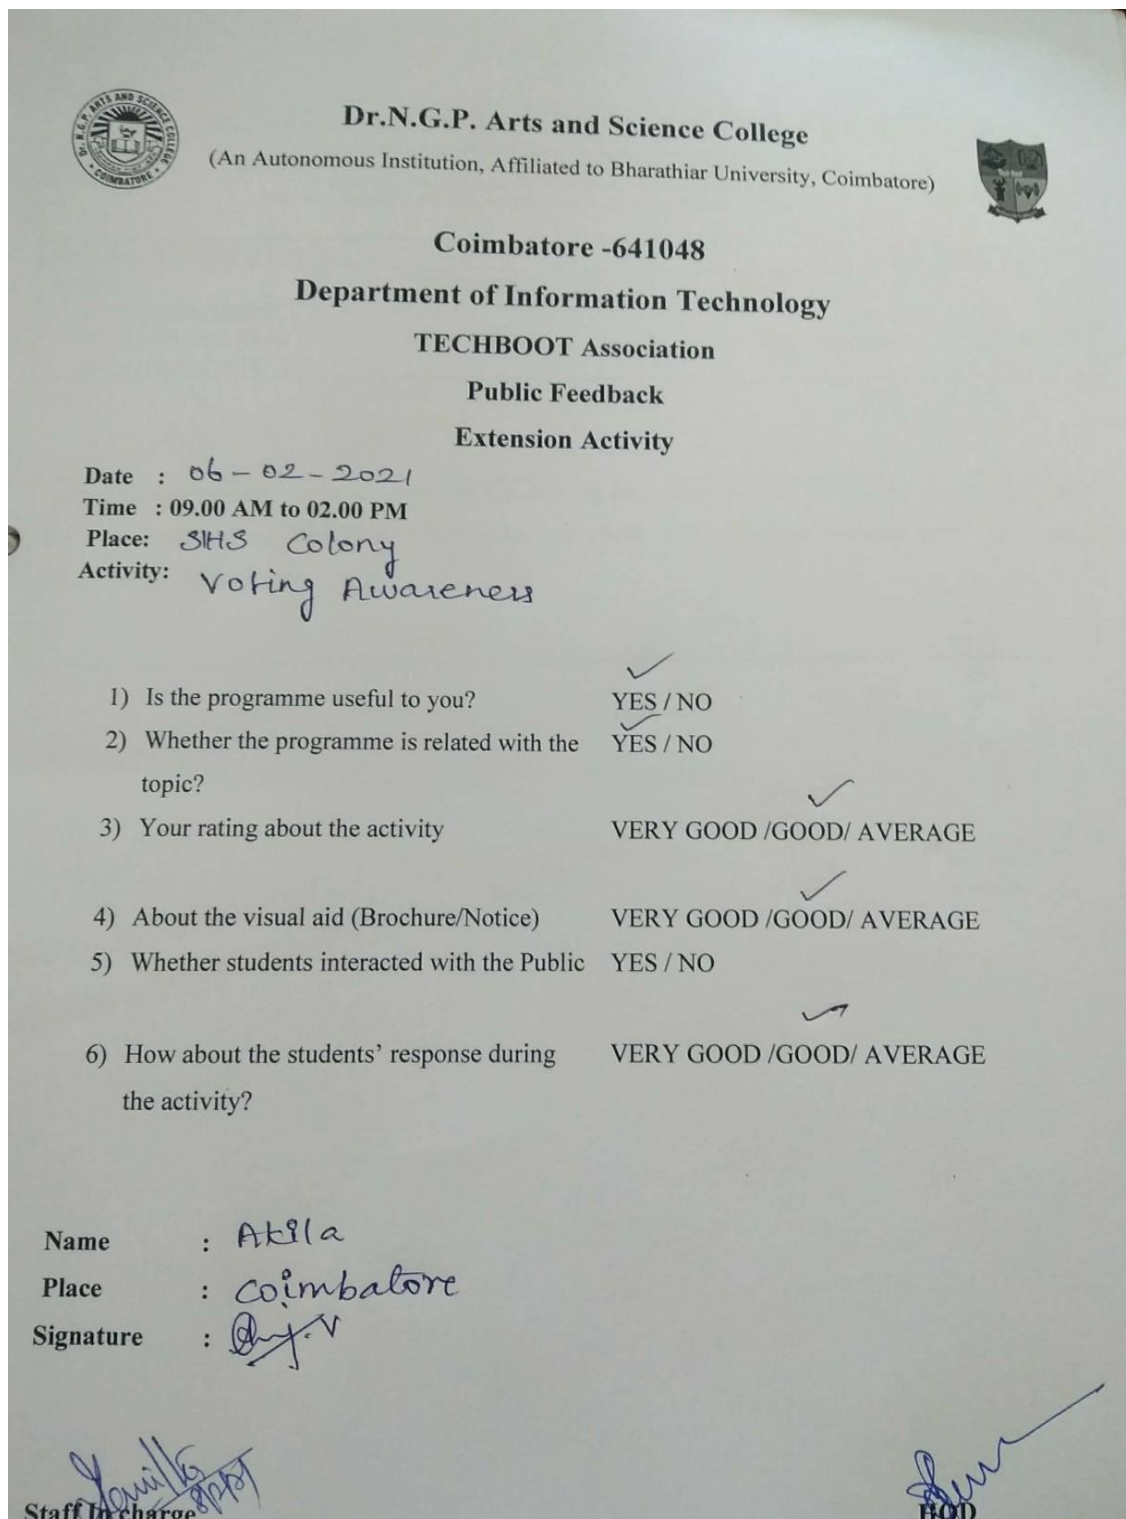 Dr. N.G.P. ARTS AND SCIENCE COLLEGE
* COIMBATORE *
Dr.N.G.P. Arts and Science College
(An Autonomous Institution, Affiliated to Bharathiar University, Coimbatore)
Coimbatore -641048
Department of Information Technology
TECHBOOT Association
Public Feedback
Extension Activity
Date : 06-02-2021
Time : 09.00 AM to 02.00 PM
Place: SIHS Colony
Activity: Voting Awareness
1) Is the programme useful to you? YES / NO
2) Whether the programme is related with the YES / NO
topic?
3) Your rating about the activity VERY GOOD /GOOD/ AVERAGE
4) About the visual aid (Brochure/Notice) VERY GOOD /GOOD/ AVERAGE
5) Whether students interacted with the Public YES / NO
6) How about the students’ response during VERY GOOD /GOOD/ AVERAGE
the activity?
Name : Akila
Place : Coimbatore
Signature :
8/2/21
Staff In charge HOD